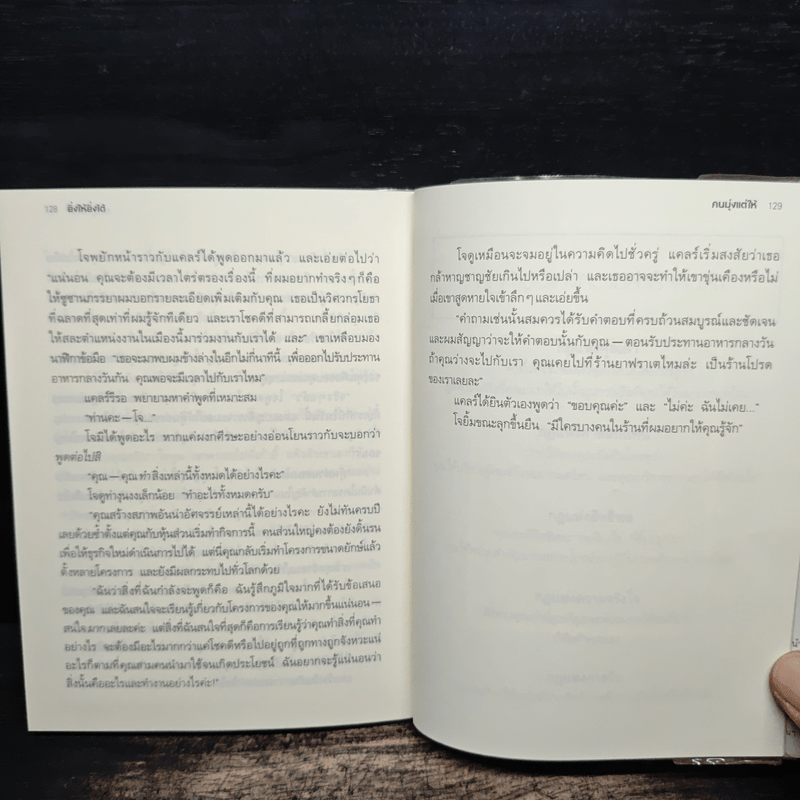 128 ยิ่งให้ยิ่งได้
โจพยักหน้าราวกับแคลร์ได้พูดออกมาแล้ว และเอ่ยต่อไปว่า
"แน่นอน คุณจะต้องมีเวลาไตร่ตรองเรื่องนี้ ที่ผมอยากทำจริงๆ ก็คือ
ให้ซูซานภรรยาผมบอกรายละเอียดเพิ่มเติมกับคุณ เธอเป็นวิศวกรโยธา
ที่ฉลาดที่สุดเท่าที่ผมรู้จักทีเดียว และเราโชคดีที่สามารถเกลี้ยกล่อมเธอ
ให้สละตำแหน่งงานในเมืองนี้มาร่วมงานกับเราได้ และ" เขาเหลือบมอง
นาฬิกาข้อมือ "เธอจะมาพบผมข้างล่างในอีกไม่กี่นาทีนี้ เพื่อออกไปรับประทาน
อาหารกลางวันกัน คุณพอจะมีเวลาไปกับเราไหม"
แคลร์รีรอ พยายามหาคำพูดที่เหมาะสม
"ท่านคะ — โจ..."
โจมิได้พูดอะไร หากแค่ผงกศีรษะอย่างอ่อนโยนราวกับจะบอกว่า
พูดต่อไปสิ
"คุณ — คุณทำสิ่งเหล่านี้ทั้งหมดได้อย่างไรคะ"
โจดูท่างุนงงเล็กน้อย "ทำอะไรทั้งหมดครับ"
"คุณสร้างสภาพอันน่าอัศจรรย์เหล่านี้ได้อย่างไรคะ ยังไม่ทันครบปี
เลยด้วยซ้ำตั้งแต่คุณกับหุ้นส่วนเริ่มทำกิจการนี้ คนส่วนใหญ่คงต้องยังดิ้นรน
เพื่อให้ธุรกิจใหม่ดำเนินการไปได้ แต่นี่คุณกลับเริ่มทำโครงการขนาดยักษ์แล้ว
ตั้งหลายโครงการ และยังมีผลกระทบไปทั่วโลกด้วย
"ฉันว่าสิ่งที่ฉันกำลังจะพูดก็คือ ฉันรู้สึกภูมิใจมากที่ได้รับข้อเสนอ
ของคุณ และฉันสนใจจะเรียนรู้เกี่ยวกับโครงการของคุณให้มากขึ้นแน่นอน —
สนใจมากเลยละค่ะ แต่สิ่งที่ฉันสนใจที่สุดก็คือการเรียนรู้ว่าคุณทำสิ่งที่คุณทำ
อย่างไร จะต้องมีอะไรมากกว่าแค่โชคดีหรือไปอยู่ถูกที่ถูกทางถูกจังหวะแน่
อะไรก็ตามที่คุณสามคนนำมาใช้จนเกิดประโยชน์ ฉันอยากจะรู้แน่นอนว่า
สิ่งนั้นคืออะไรและทำงานอย่างไรค่ะ!"
คนมุ่งแต่ให้ 129
โจดูเหมือนจะจมอยู่ในความคิดไปชั่วครู่ แคลร์เริ่มสงสัยว่าเธอ
กล้าหาญชาญชัยเกินไปหรือเปล่า และเธออาจจะทำให้เขาขุ่นเคืองหรือไม่
เมื่อเขาสูดหายใจเข้าลึกๆ และเอ่ยขึ้น
"คำถามเช่นนั้นสมควรได้รับคำตอบที่ครบถ้วนสมบูรณ์และชัดเจน
และผมสัญญาว่าจะให้คำตอบนั้นกับคุณ — ตอนรับประทานอาหารกลางวัน
ถ้าคุณว่างจะไปกับเรา คุณเคยไปที่ร้านยาฟราเตไหมล่ะ เป็นร้านโปรด
ของเราเลยละ"
แคลร์ได้ยินตัวเองพูดว่า "ขอบคุณค่ะ" และ "ไม่ค่ะ ฉันไม่เคย..."
โจยิ้มขณะลุกขึ้นยืน "มีใครบางคนในร้านที่ผมอยากให้คุณรู้จัก"